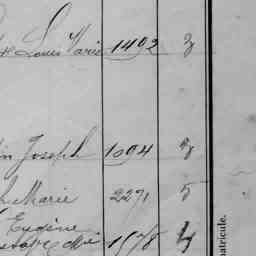 Louis Marie 1492 3
Joseph 1094 3
Marie 2271 5
Eugène
1978 4
matricule.